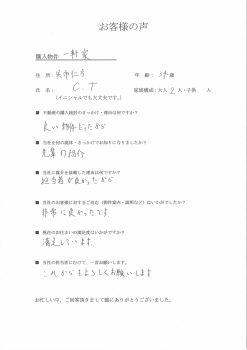 お客様の声
購入物件: 一軒家
住 所: 呉市仁方 年 齢: 34 歳
氏 名: C.T 家族構成:大人 2 人・子供 人
(イニシャルでも大丈夫です。)
■ 不動産の購入検討のきっかけ・理由は何ですか?
良い物件だったから
■ 当社を何の媒体・きっかけでお知りになりましたか?
先輩の紹介
■ 当社に仲介を依頼した理由は何ですか?
担当者が良かったから
■ 当社のお客様に対するご対応(物件案内・説明など)はいかがでしたか?
非常に良かったです
■ 現在のお住まいの満足度はいかがですか?
満足しています。
■ 当社の担当者にむけて、一言お願いします。
これからもよろしくお願いします
お忙しい中、ご回答頂きまして誠にありがとうございました。